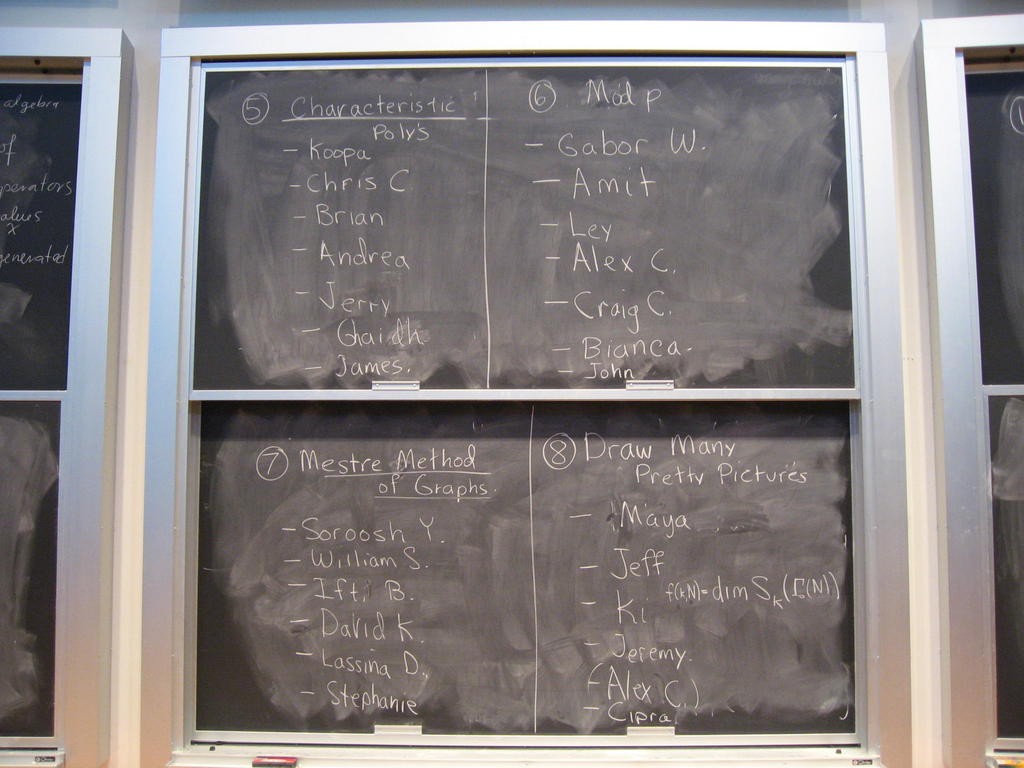 algebra
of
perators
alues
x
generated
⑤ Characteristic
Poly's
- Koopa
- Chris C.
- Brian
- Andrea
- Jerry
- Ghaidh
- James.
⑥ Mod p
- Gabor W.
- Amit
- Ley
- Alex C.
- Craig C.
- Bianca.
- John
⑦ Mestre Method
of Graphs.
- Soroosh Y.
- William S.
- Ifti B.
- David K.
- Lassina D.
- Stephanie
⑧ Draw Many
Pretty Pictures
- Maya
- Jeff
- Ki f(k,N)=dim Sₖ(Γ₀(N))
- Jeremy.
- (Alex C.)
- Cipra.